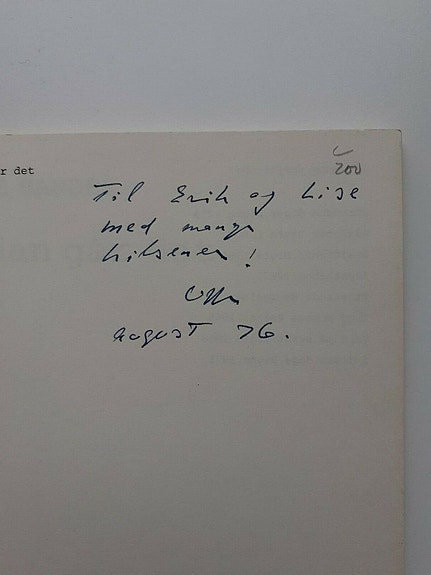 r det
200
Til Erik og Lise
med mange
hilsener!
august 76.